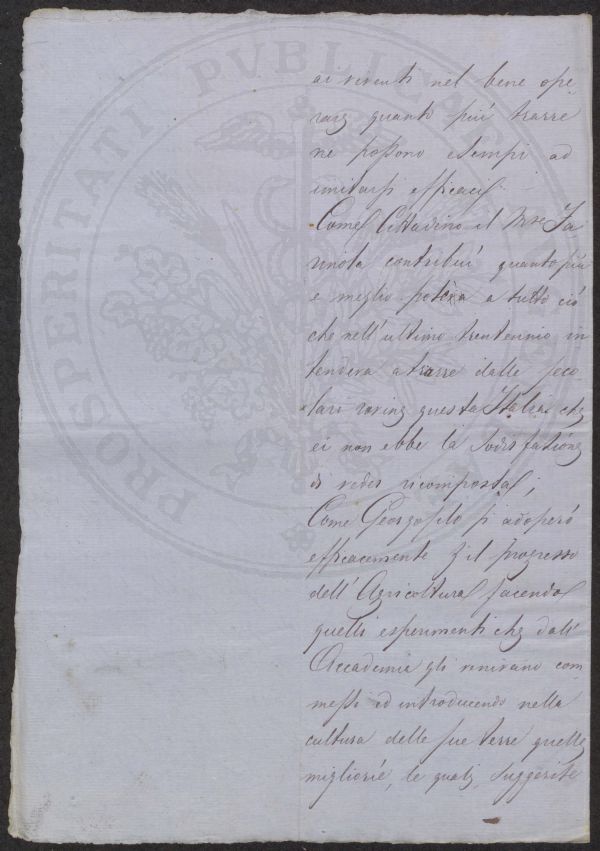 PROSPERITATI PVBLICAE
ai viventi nel bene ope-
rare quanti più trarre
ne possono esempi ad
imitarsi efficaci.
Come Cittadino il Mse Fa
rinola contribuì quanto più
e meglio poteva a tutto ciò
che nell'ultimo trentennio in
tendeva a trarre dalle seco
lari rovine questa Italia che
ei non ebbe la sodisfazione
di veder ricomposta;
Come Georgofilo si adoperò
efficacemente p il progresso
dell'Agricoltura facendo
quelli esperimenti che dall'
Accademia gli venivano com
messi ed introducendo nella
cultura delle sue terre quelle
migliorie, le quali, suggerite